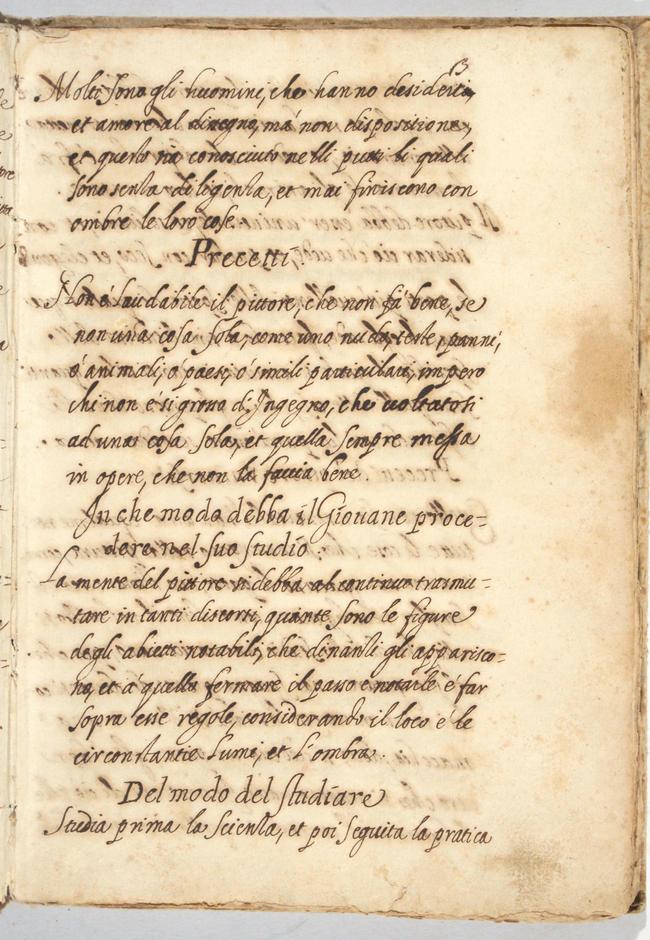 13
Molti sono gli huomini, che hanno desiderio,
et amore al disegno, má non dispositione,
et questo sia conosciuto nelli putti li quali
sono senza diligenza, et mai finiscono con
ombre le loro cose.
Precetti
Non é laudabile il pittore, che non fá bene, se
non una cosa sola, come uno nudo, teste, panni,
ó animali, ó paesi, ó simili particulari, impero
chi non é si grosso d'Ingegno, che voltatosi
ad una cosa sola, et quella sempre messa
in opere, che non la faccia bene.
In che modo debba il Giovane proce=
dere nel suo studio.
La mente del pittore si debba al continuo trasmu=
tare in tanti discorsi, quante sono le figure
degli abietti notabili, che dinanzi gli apparisco=
no, et á quelle fermare il passo e notarle é far
sopra esse regole, considerando il loco é le
circonstantie Lumi, et L'ombra.
Del modo del studiare
Studia prima la Scienza, et poi seguita la pratica